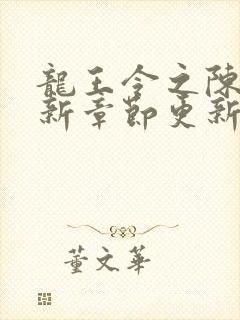 龍王令之陳
新章節更新
董文華